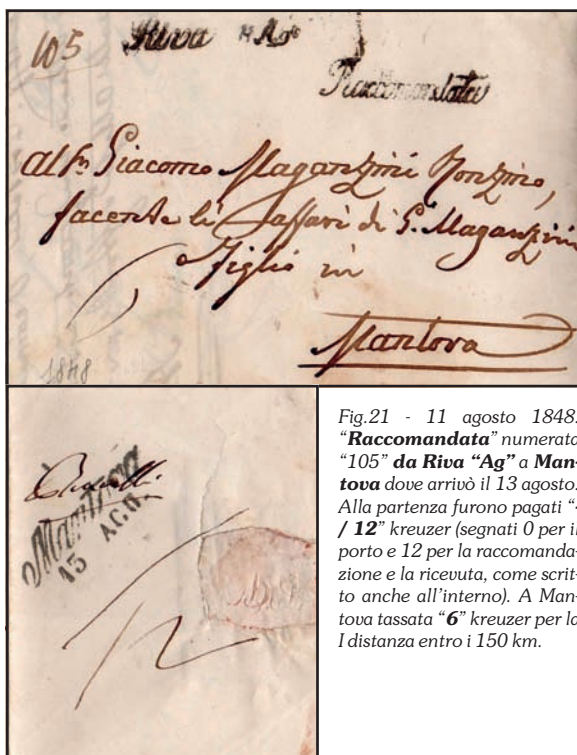 105 Riva 11 Ag
Raccomandata
Giacomo Maganzini
facente li affari di G. Maganzini
Figlio in
Mantova
1848
Mantova
13 AGO.
12
Fig.21 - 11 agosto 1848.
“Raccomandata” numerata
“105” da Riva “Ag” a Man-
tova dove arrivò il 13 agosto.
Alla partenza furono pagati “
/ 12” kreuzer (segnati 0 per il
porto e 12 per la raccomanda-
zione e la ricevuta, come scrit-
to anche all’interno). A Man-
tova tassata “6” kreuzer per la
I distanza entro i 150 km.